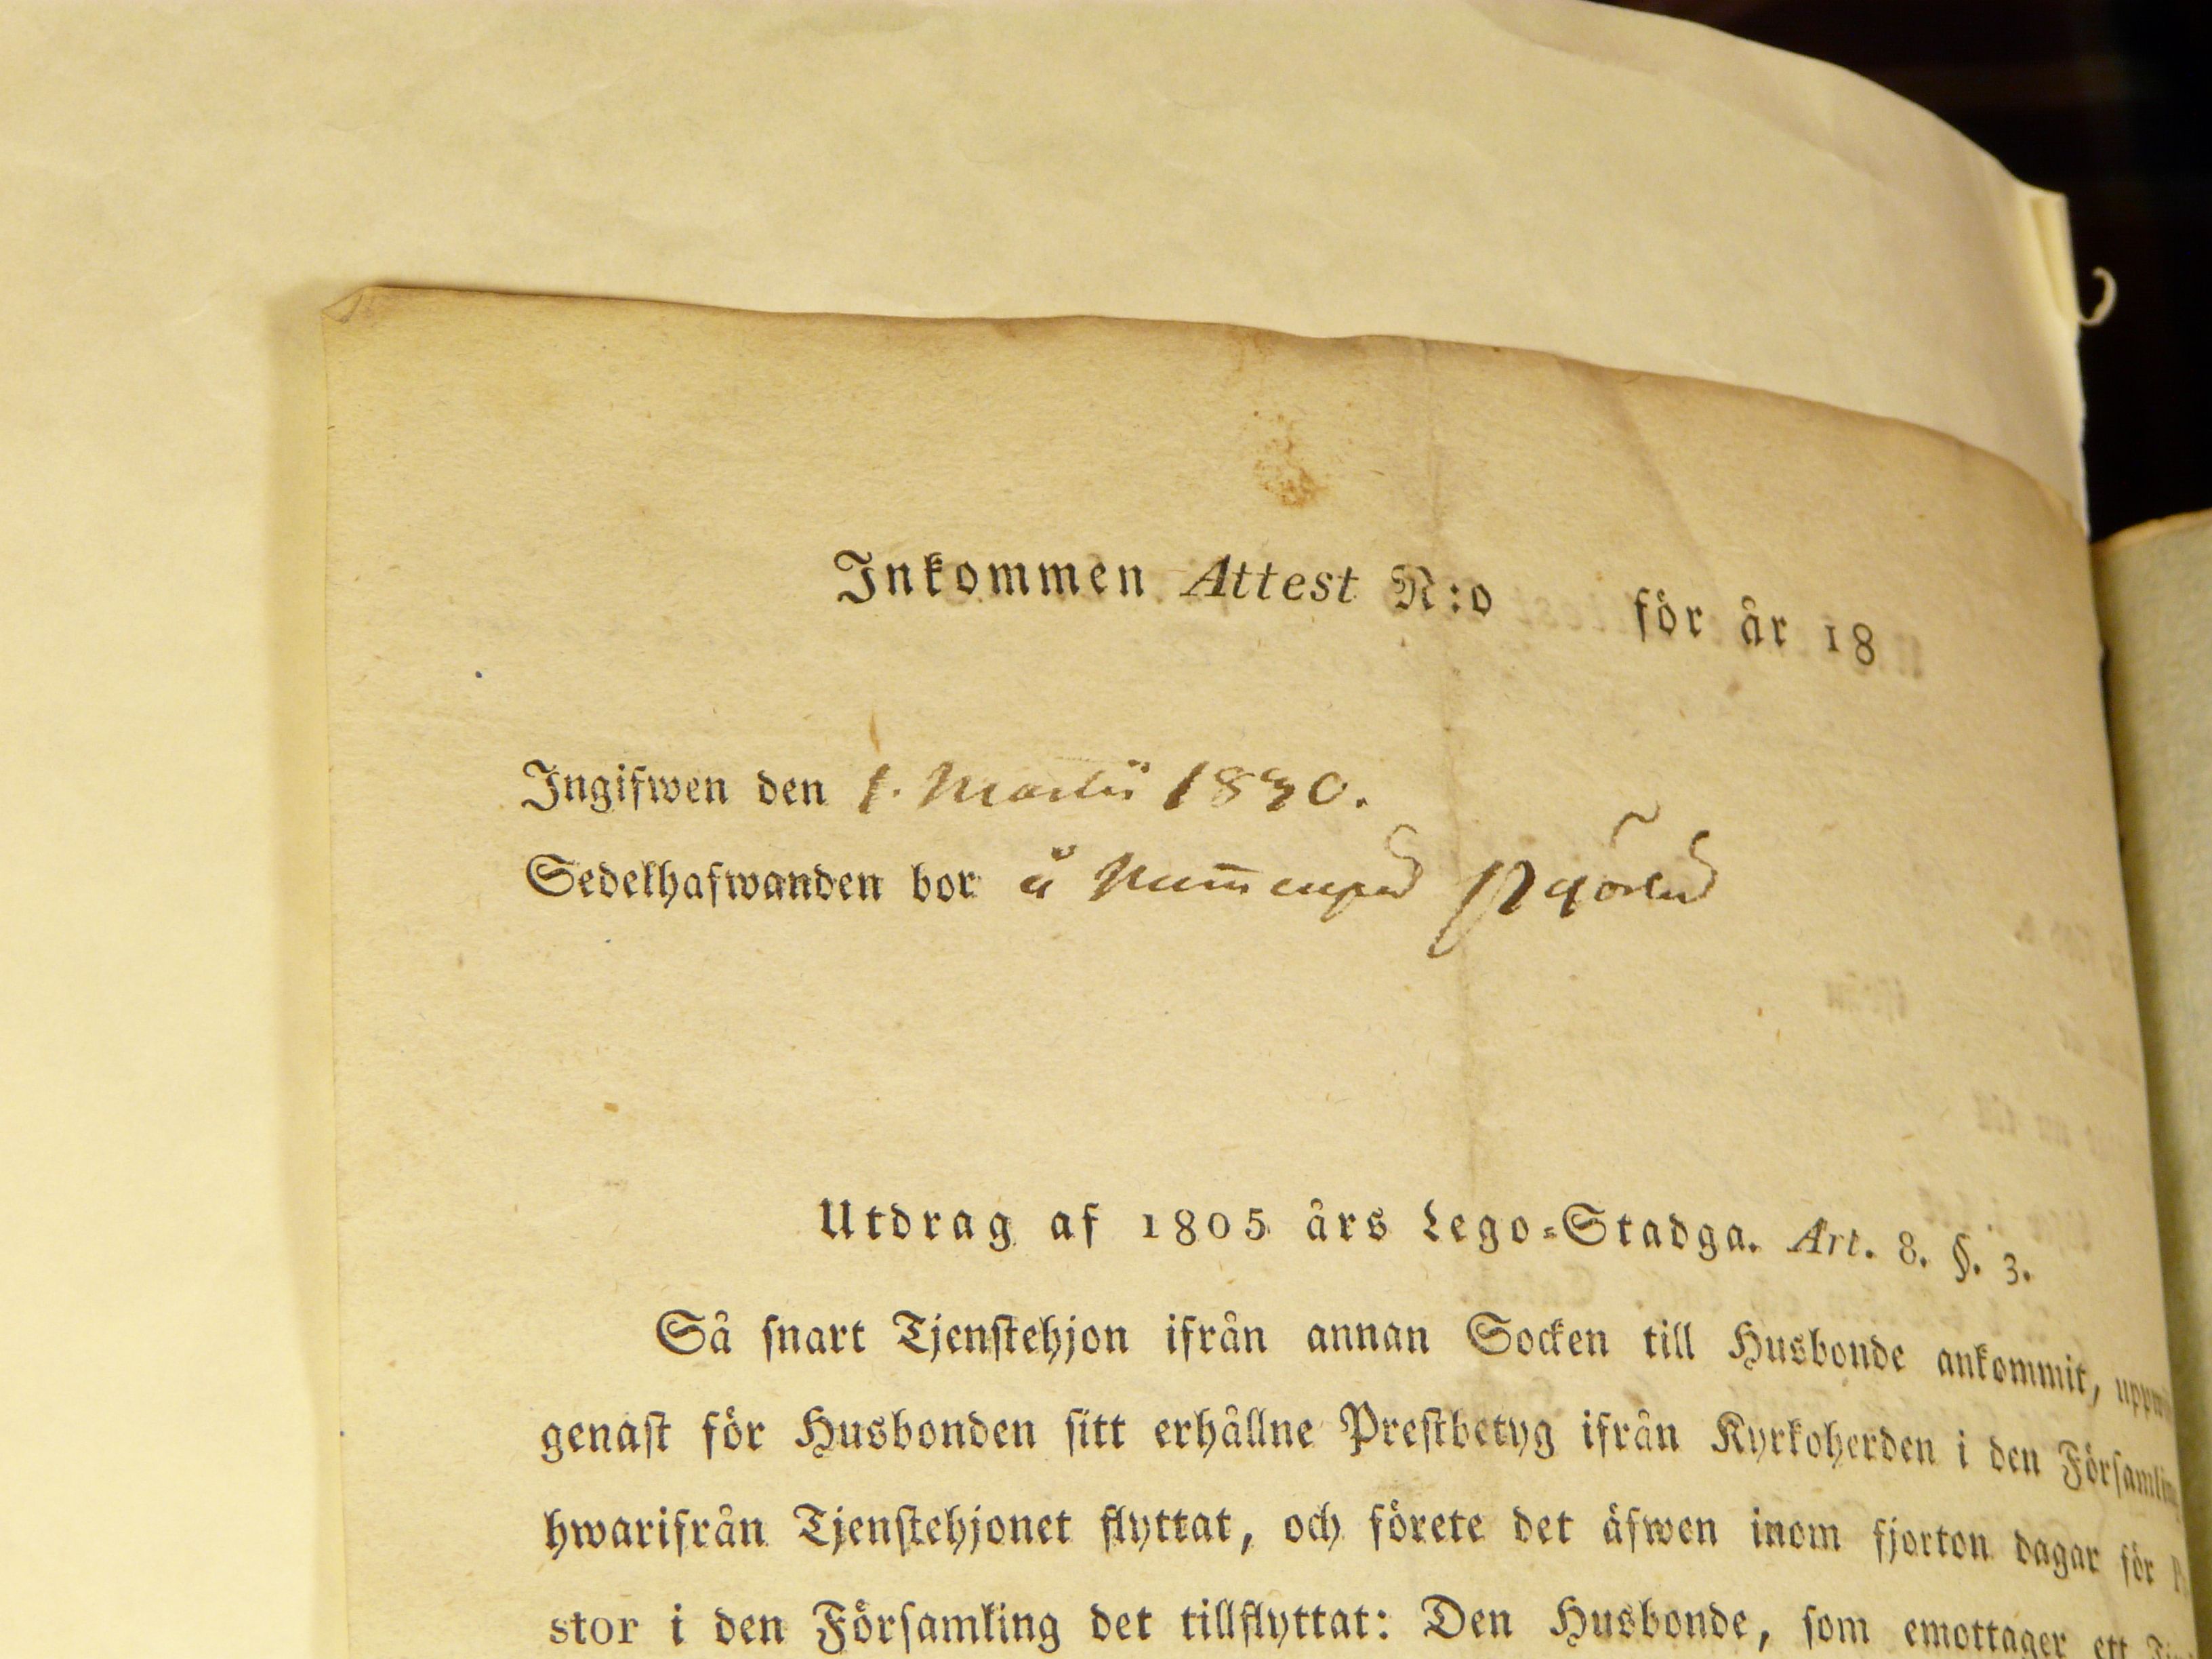 Inkommen Attest N:o för år 18
Ingifwen den 1. Martii 1830.
Sedelhafwanden bor å
Utdrag af 1805 års Lego-Stadga. Art. 8. §. 3.
Så snart Tjenstehjon ifrån annan Socken till Husbonde ankommit,
genast för Husbonden sitt erhållne Prestbetyg ifrån Kyrkoherden i den Församling
hwarifrån Tjenstehjonet flyttat, och förete det äfwen inom fjorton dagar för
stor i den Församling det tillflyttat: Den Husbonde, som emottager ett